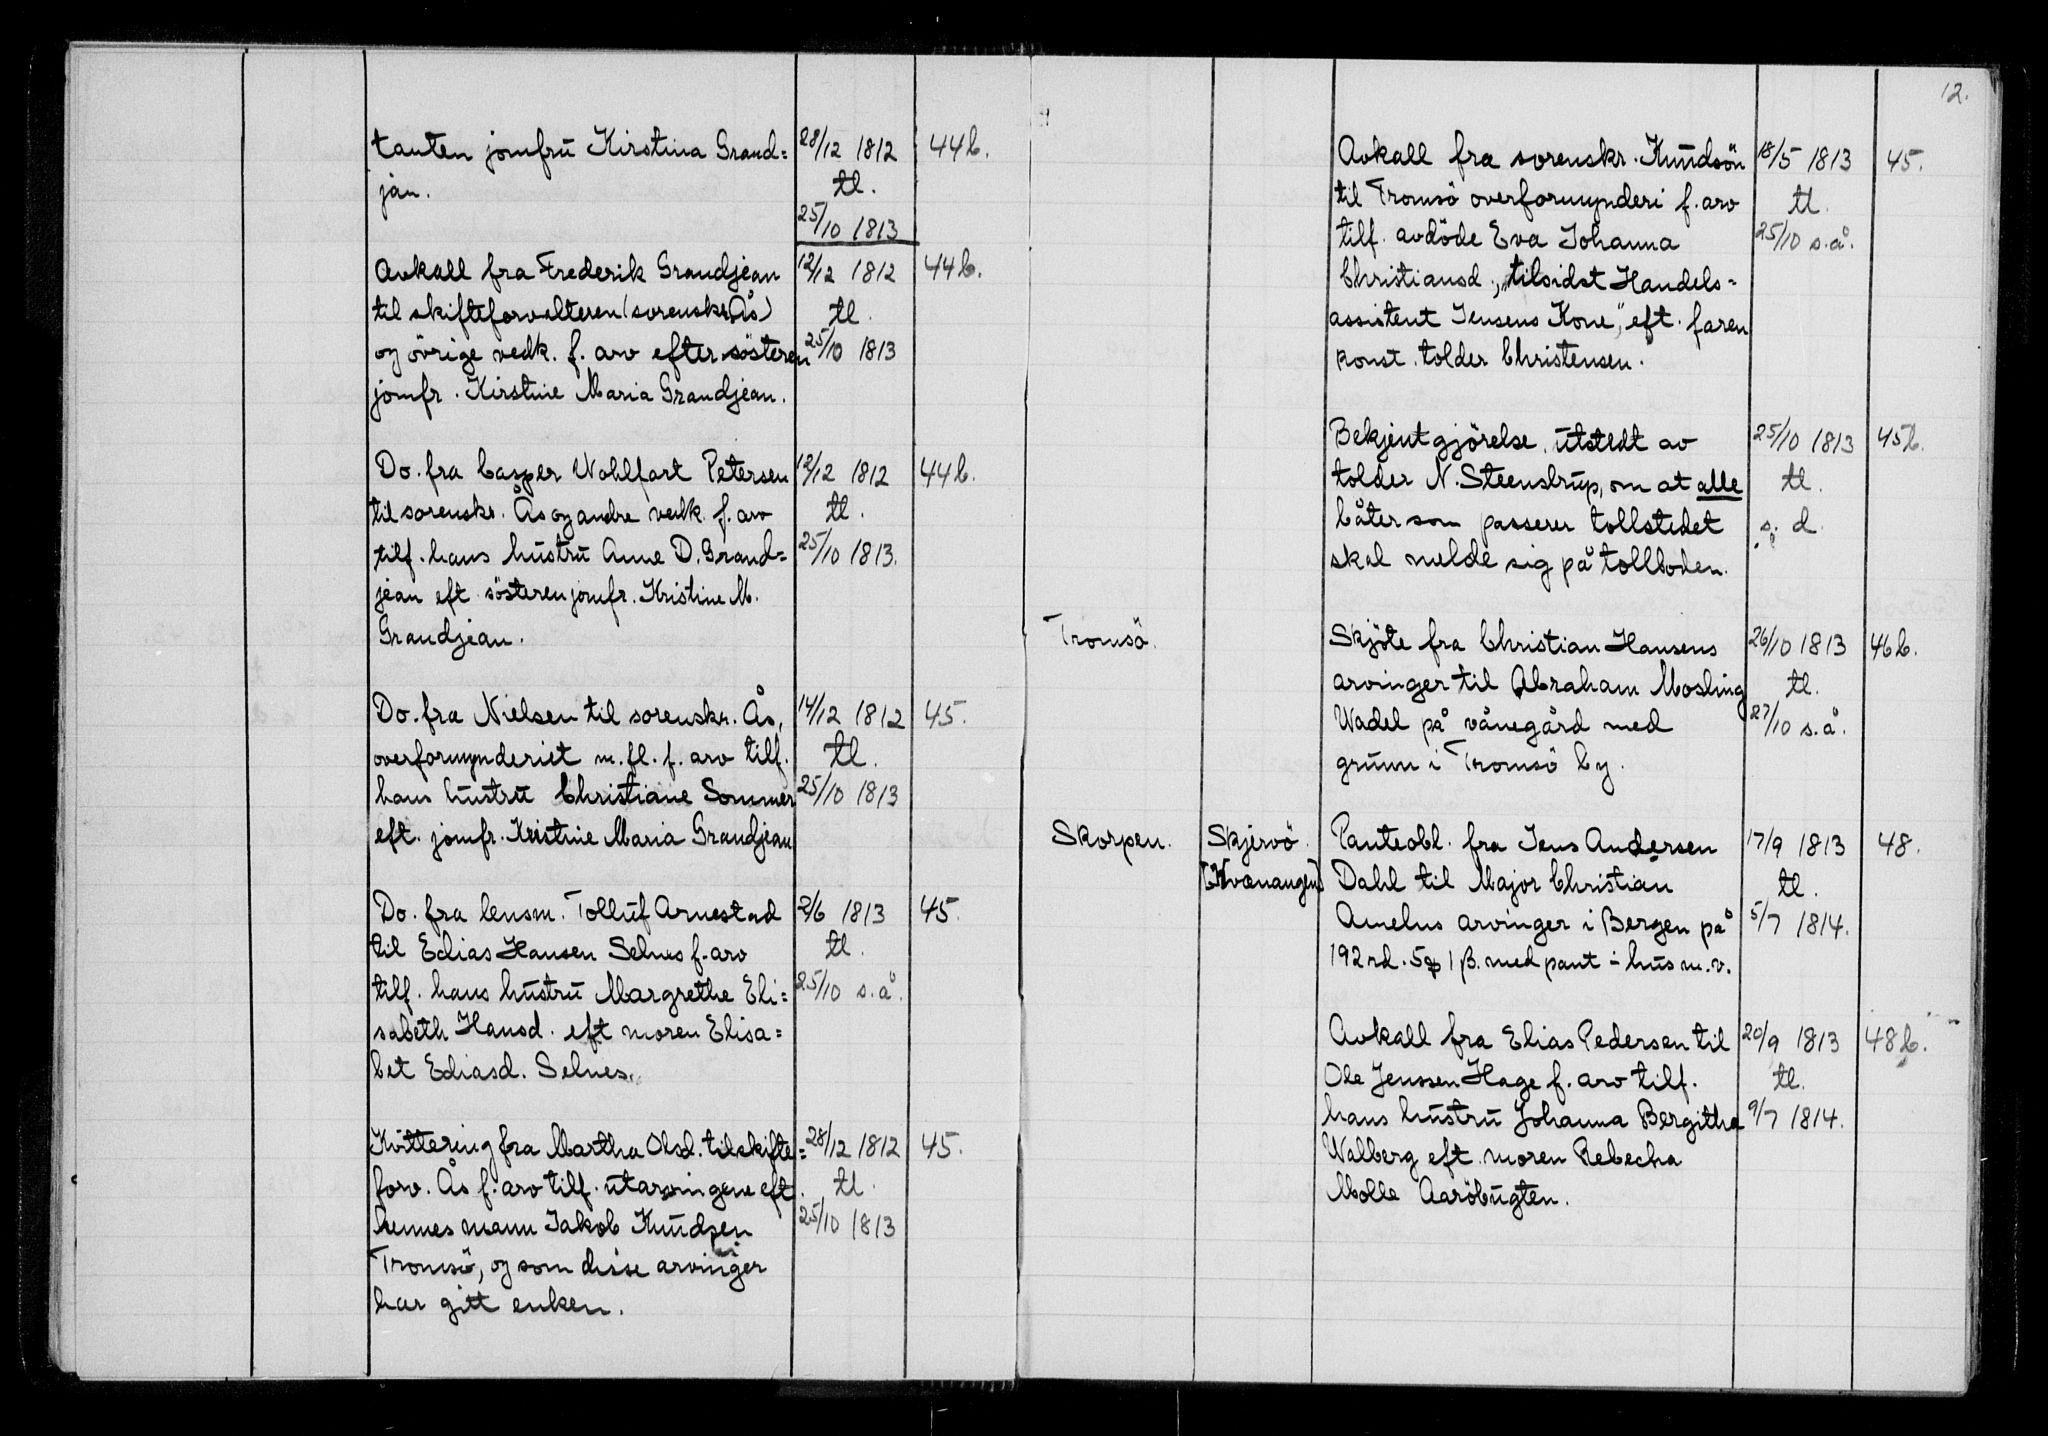 tanten jomfru Kirstina Grand= 28/12 1812 44b.
jan. tl.
25/10 1813
Avkall fra Frederik Grandjean 12/12 1812 44b.
til skifteforvalteren (sorenskr. Ås) tl.
og övrige vedk. f. arv efter sösteren 25/10 1813
jomfr. Kirstine Maria Grandjean.
Do. fra Casper Wohlfart Petersen 12/12 1812 44b.
til sorenskr. Ås og andre vedk. f. arv tl.
tilf. hans hustru Anne D. Grand= 25/10 1813.
jean eft sösteren jomfr. Kristine M.
Grandjean.
Do. fra Nielsen til sorenskr. Ås, 14/12 1812 45.
overformynderiet m. fl. f. arv tilf. tl.
hans hustru Christiane Sommer 25/10 1813
eft. jomfr. Kristine Maria Grandjean
Do. fra lensm. Tolluf Arnestad 2/6 1813 45.
til Edias Hansen Selnes f. arv tl.
tilf. hans hustru Margrethe Eli= 25/10 s.å.
sabeth Hansd. eft moren Elisa=
bet Ediasd. Selnes.
Kvittering fra Martha Olsd. til skifte= 28/12 1812 45.
forv. Ås f. arv tilf. utarvingene eft. tl.
hennes mann Jakob Knudsen 25/10 1813
Tromsö, og som disse arvinger
har gitt enken.
12.
Avkall fra sorenskr. Knudsön 18/5 1813 45.
til Tromsö overformynderi f. arv tl.
tilf. avdöde Eva Johanna 25/10 s.å.
Christiansd., "tilsidst Handels-
assistent Jensens Kone", eft. faren
konst. tolder Christensen.
Bekjentgjörelse, utstedt av 25/10 1813 45b.
tolder N. Steenstrup, om at alle tl.
båter som passerer tollstedet s. d.
skal melde sig på tollboden.
Tromsö. Skjöte fra Christian Hansens 26/10 1813 46b.
arvinger til Abraham Mosling tl.
Wadel på vånegård med 27/10 s.å.
grunn i Tromsö by.
Skorpen. Skjervö. Panteobl. fra Jens Andersen 17/9 1813 48.
[Kvænangen] Dahl til Major Christian tl.
Amelns arvinger i Bergen på 5/7 1814.
192 rd. 5 1 β. med pant i hus m.v.
Avkall fra Elias Pedersen til 20/9 1813 48b.
Ole Jenssen Hage f. arv tilf. tl.
hans hustru Johanna Bergitha 9/7 1814.
Walberg eft. moren Rebecha
Molle Aaröbugten.